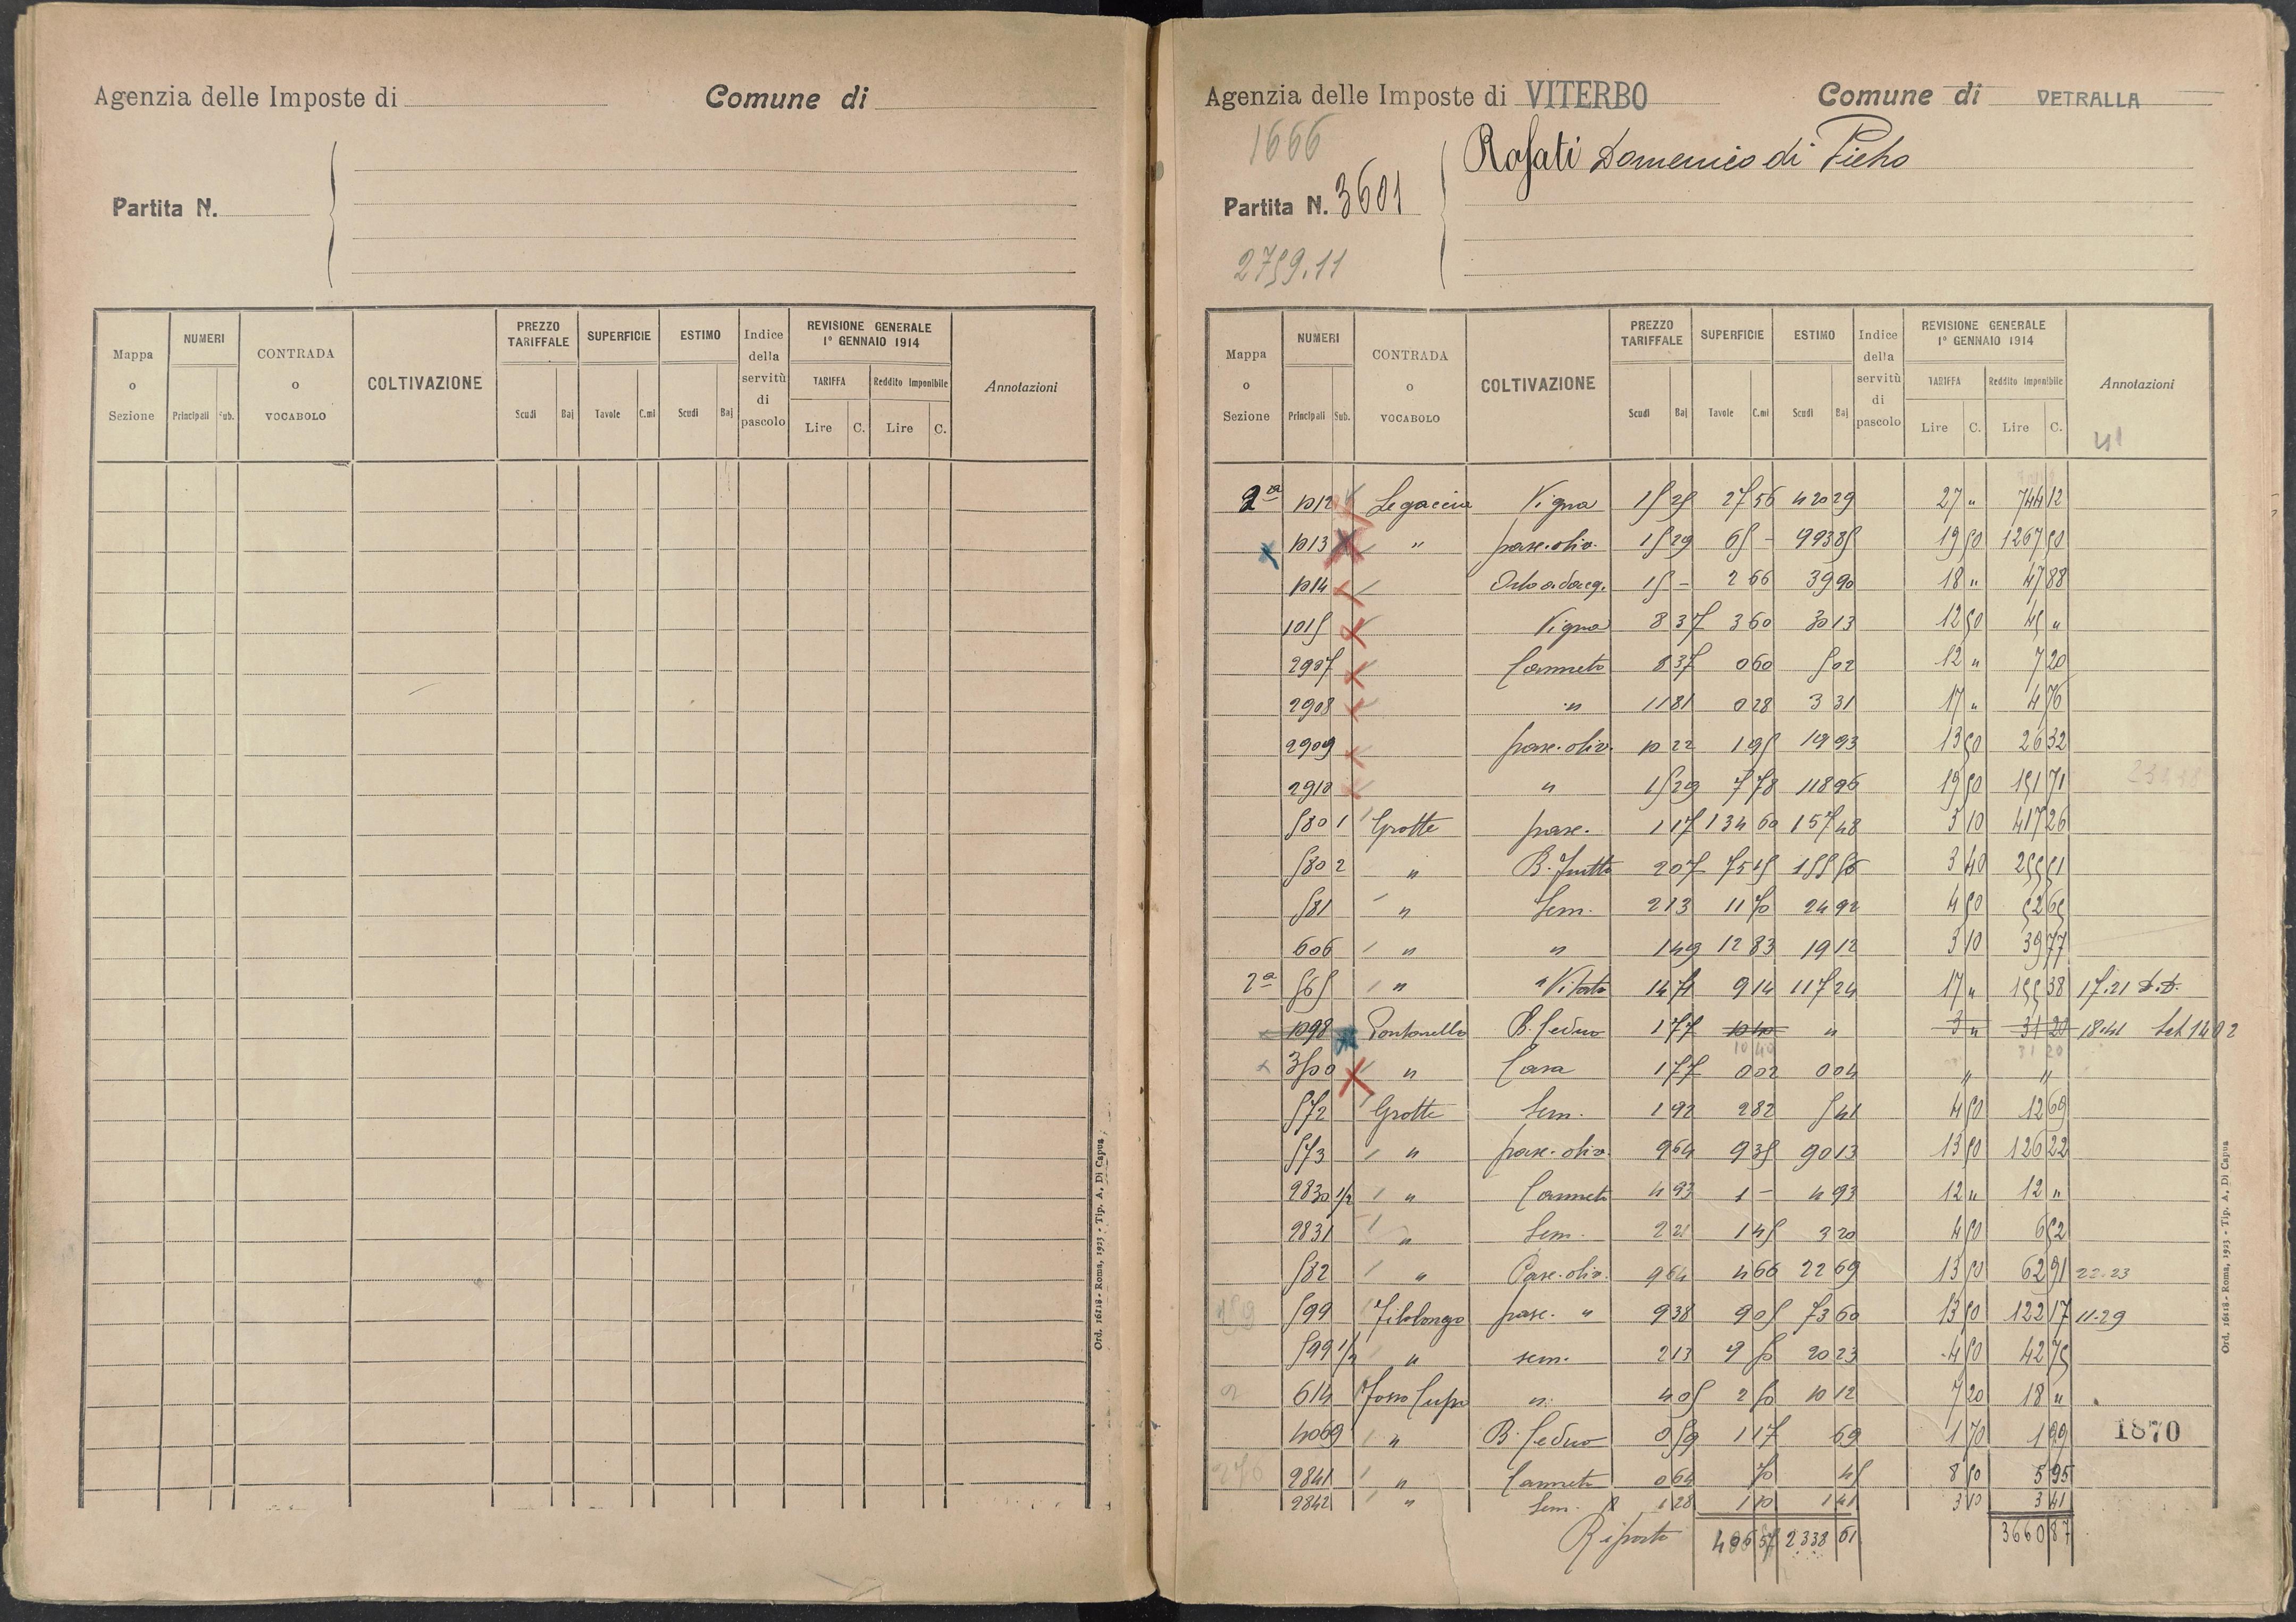 Agenzia delle Imposte di
Comune di
Partita N.
Mappa o Sezione
NUMERI
Principali Sub.
CONTRADA o VOCABOLO
COLTIVAZIONE
PREZZO TARIFFALE
Scudi Baj
SUPERFICIE
Tavole C.mi
ESTIMO
Scudi Baj
Indice della servitù di pascolo
REVISIONE GENERALE 1° GENNAIO 1914
TARIFFA
Lire C.
Reddito Imponibile
Lire C.
Annotazioni
Ord. 16118 - Roma, 1923 - Tip. A. Di Capua
Agenzia delle Imposte di VITERBO
Comune di VETRALLA
1666
Rosati Domenico di Pietro
Partita N. 3601
2759.11
Mappa o Sezione
NUMERI
Principali Sub.
CONTRADA o VOCABOLO
COLTIVAZIONE
PREZZO TARIFFALE
Scudi Baj
SUPERFICIE
Tavole C.mi
ESTIMO
Scudi Baj
Indice della servitù di pascolo
REVISIONE GENERALE 1° GENNAIO 1914
TARIFFA
Lire C.
Reddito Imponibile
Lire C.
Annotazioni
41
2ª 1012 Legaccia Vigna 15 29 27 56 420 29 27 " 744 12
1013 " pasc. oliv. 15 29 65 - 993 85 19 50 1267 50
1014 Orto adacq. 15 - 2 66 39 90 18 " 47 88
1015 Vigna 8 37 3 60 30 13 12 50 45 "
2907 Canneto 8 37 0 60 5 02 12 " 7 20
2908 " 11 81 0 28 3 31 17 " 4 76
2909 pasc. oliv. 10 22 1 95 19 93 13 50 26 32
2910 " 15 29 7 78 118 96 19 50 151 71
580 1 Grotte pasc. 1 17 134 60 157 48 3 10 417 26
580 2 " B. frutto 2 07 75 15 155 56 3 40 255 51
581 " Sem. 2 13 11 70 24 92 4 50 52 65
606 " " 1 49 12 83 19 12 3 10 39 77
2ª 565 " Vitato 9 14 117 24 17 " 155 38 17.21
1098 B. Ceduo 1 77 10 40 " 3 " 31 20
10 40 31 20
3500 " Casa 1 77 0 02 0 04 " "
572 Grotte Sem. 1 92 2 82 5 41 4 50 12 69
573 " pasc. oliv. 9 64 9 35 90 13 13 50 126 22
2830 1/2 " Canneto 4 93 1 - 4 93 12 " 12 "
2831 " Sem. 2 21 1 45 3 20 4 50 6 52
582 " Pasc. oliv. 9 64 4 66 22 69 13 50 62 91 22-23
599 Filolongo pasc. " 9 38 9 05 73 60 13 50 122 17 11-29
599 1/2 " sem. 2 13 9 50 20 23 4 50 42 75
614 Fosso Cupo " 4 05 2 50 10 12 7 20 18 "
4069 " B. Ceduo 0 59 1 17 69 1 70 1 99
1870
2841 " Canneto 0 64 70 45 8 50 5 95
2842 " Sem. 1 28 1 10 1 41 3 10 3 41
Riporto 406 57 2338 61 3660 87
Ord. 16118 - Roma, 1923 - Tip. A. Di Capua